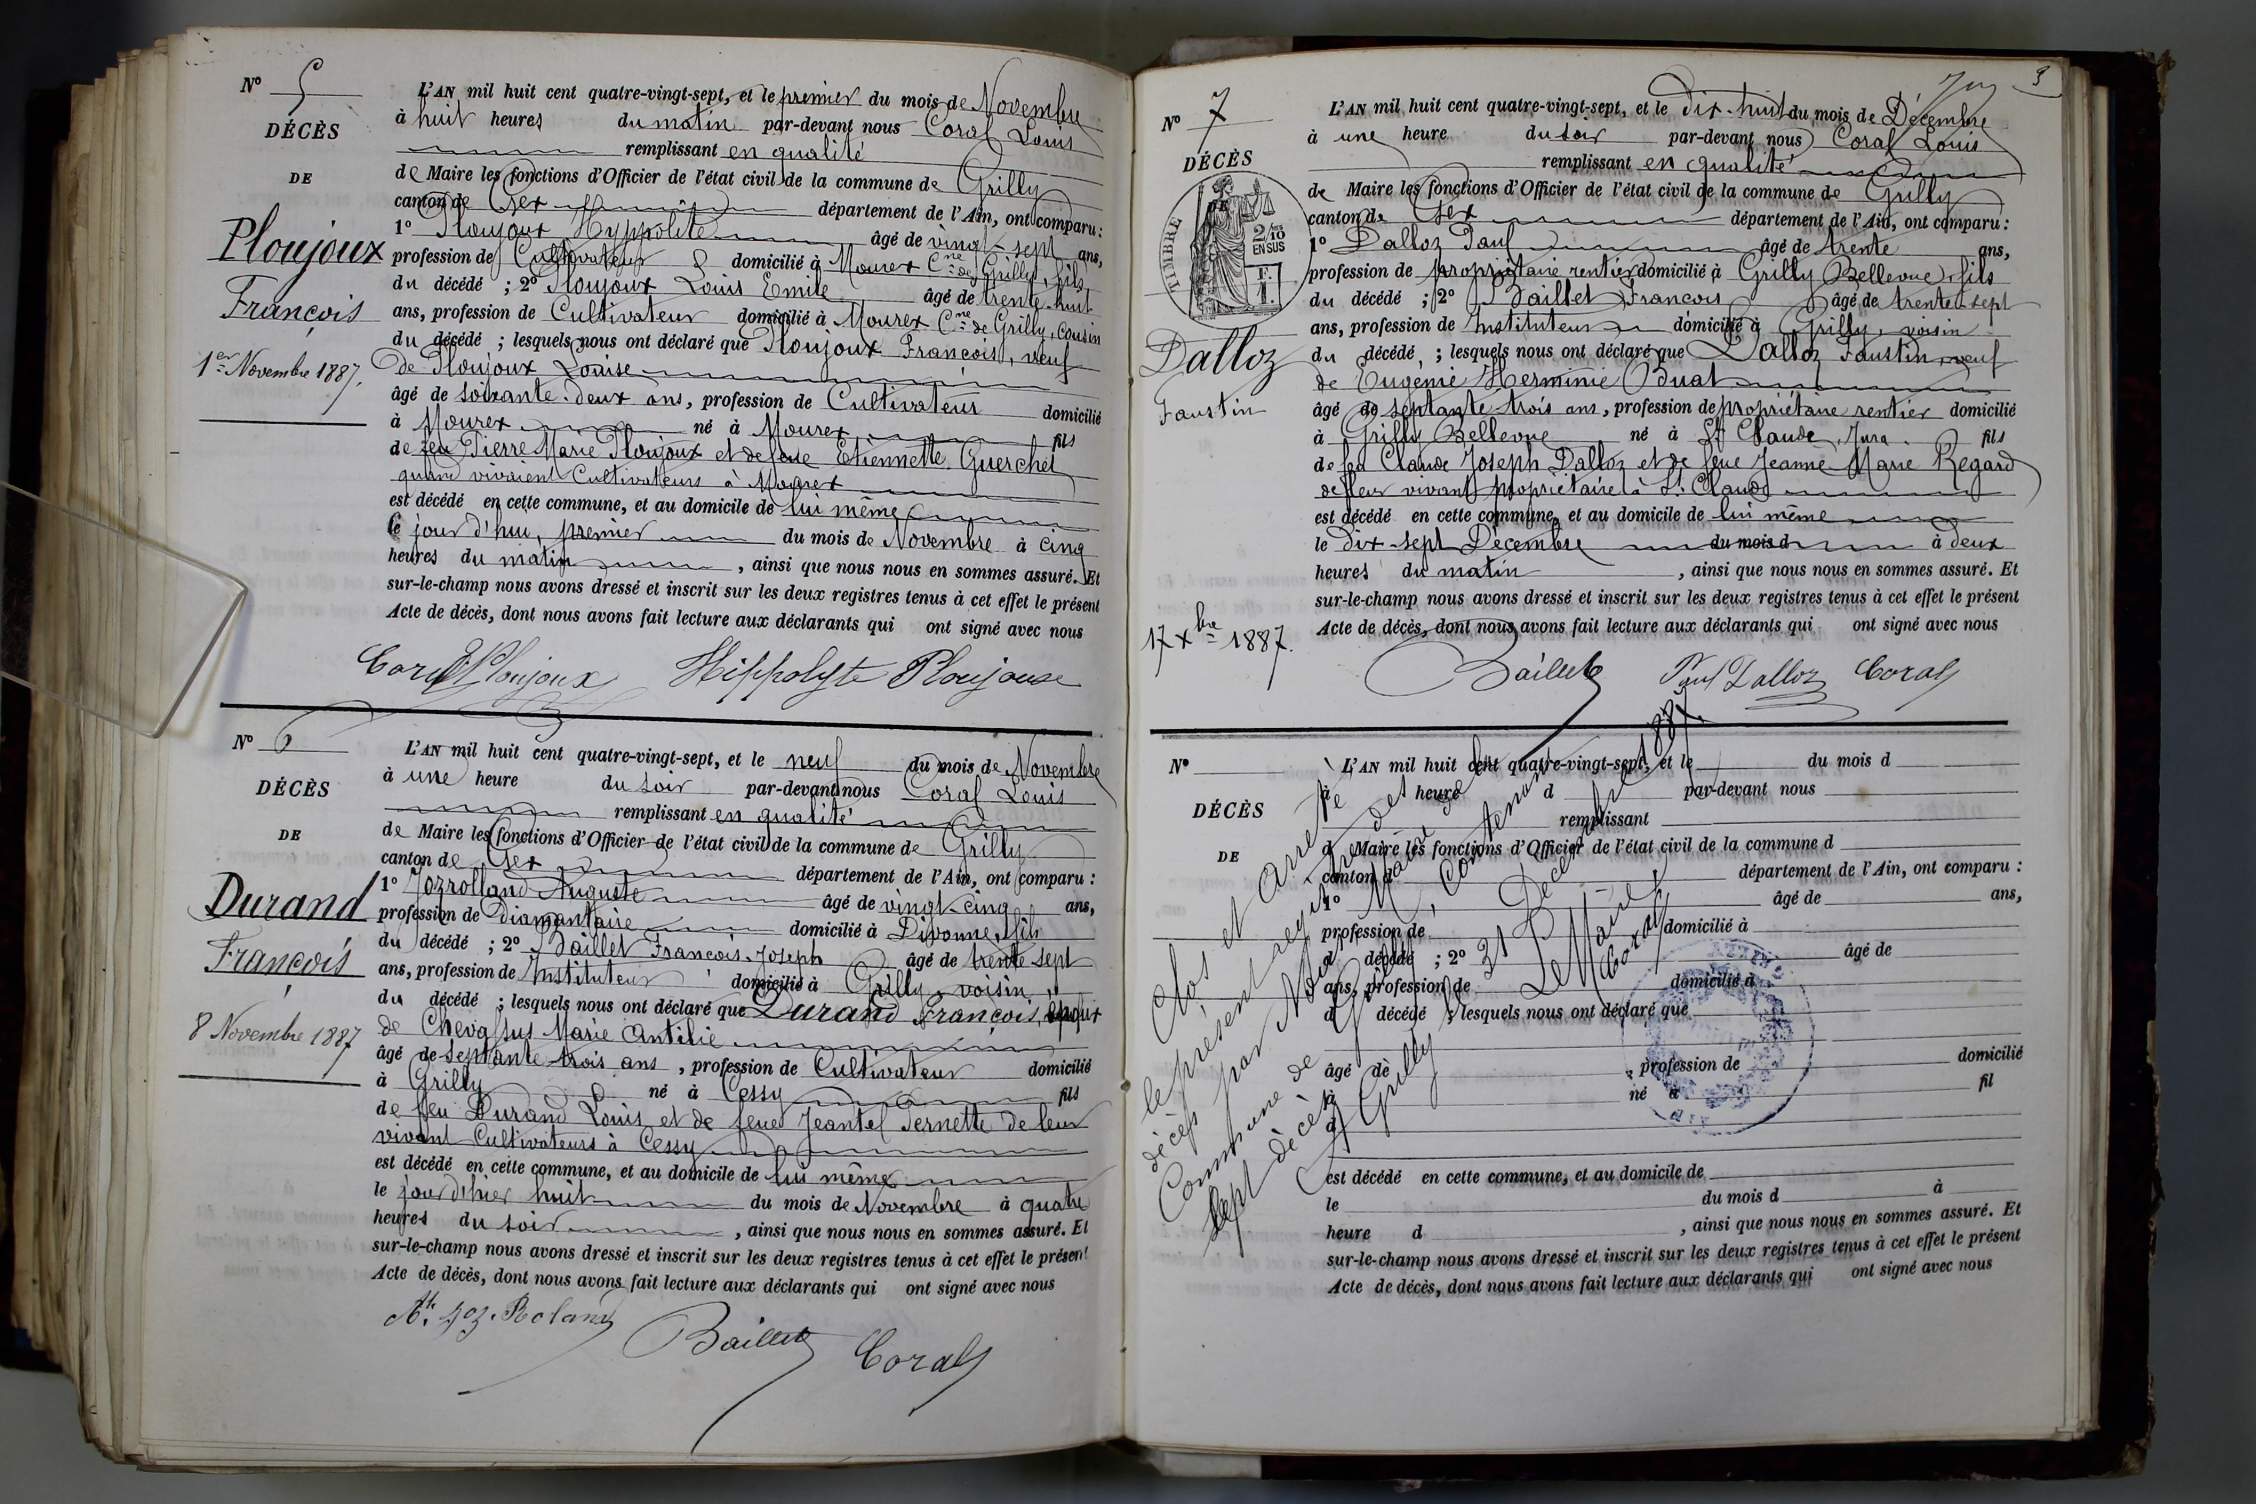 N° 5
DÉCÈS
DE
Ploujoux
François
1er Novembre 1887.
L'AN mil huit cent quatre-vingt-sept, et le premier du mois de Novembre
à huit heures du matin par-devant nous Coral Louis
remplissant en qualité
de Maire les fonctions d'Officier de l'état civil de la commune de Grilly
canton de Gex département de l'Ain, ont comparu :
1° Ploujoux Hyppolite âgé de vingt-sept ans,
profession de Cultivateur domicilié à Mourex Cne de Grilly, fils
du décédé ; 2° Ploujoux Louis Emile âgé de trente-huit
ans, profession de Cultivateur domicilié à Mourex Cne de Grilly, cousin
du décédé ; lesquels nous ont déclaré que Ploujoux François, veuf
de Ploujoux Louise
âgé de soixante-deux ans, profession de Cultivateur domicilié
à Mourex né à Mourex fils
de feu Pierre Marie Ploujoux et de feue Etiennette Guerchet
quand vivaient Cultivateurs à Mourex
est décédé en cette commune, et au domicile de lui même
le jour d'hui, premier du mois de Novembre à cinq
heures du matin, ainsi que nous nous en sommes assuré. Et
sur-le-champ nous avons dressé et inscrit sur les deux registres tenus à cet effet le présent
Acte de décès, dont nous avons fait lecture aux déclarants qui ont signé avec nous
Coral Ploujoux Hippolyte Ploujoux
N° 6
DÉCÈS
DE
Durand
François
8 Novembre 1887
L'AN mil huit cent quatre-vingt-sept, et le neuf du mois de Novembre
à une heure du soir par-devant nous Coral Louis
remplissant en qualité
de Maire les fonctions d'Officier de l'état civil de la commune de Grilly
canton de Gex département de l'Ain, ont comparu :
1° Jozrolland Auguste âgé de vingt-cinq ans,
profession de diamantaire domicilié à Divonne, fils
du décédé ; 2° Baillet François-Joseph âgé de trente sept
ans, profession de Instituteur domicilié à Grilly, voisin
du décédé ; lesquels nous ont déclaré que Durand François, époux
de Chevassus Marie Antélie
âgé de septante trois ans, profession de Cultivateur domicilié
à Grilly né à Cessy fils
de feu Durand Louis et de feue Jeantel Pernette de leur
vivant Cultivateurs à Cessy
est décédé en cette commune, et au domicile de lui même
le jour d'hier huit du mois de Novembre à quatre
heures du soir, ainsi que nous nous en sommes assuré. Et
sur-le-champ nous avons dressé et inscrit sur les deux registres tenus à cet effet le présent
Acte de décès, dont nous avons fait lecture aux déclarants qui ont signé avec nous
Ate Joz. Roland Baillet Coral
3
N° 7
DÉCÈS
TIMBRE
2/10 EN SUS
F. 1.
Dalloz
Faustin
17 Xbre 1887.
L'AN mil huit cent quatre-vingt-sept, et le dix-huit du mois de Décembre
à une heure du soir par-devant nous Coral Louis
remplissant en qualité
de Maire les fonctions d'Officier de l'état civil de la commune de Grilly
canton de Gex département de l'Ain, ont comparu :
1° Dalloz Paul âgé de trente ans,
profession de propriétaire rentier domicilié à Grilly Bellevue, fils
du décédé ; 2° Baillet François âgé de trente-sept
ans, profession de Instituteur domicilié à Grilly, voisin
du décédé ; lesquels nous ont déclaré que Dalloz Faustin, veuf
de Eugénie Herminie Buat
âgé de septante trois ans, profession de propriétaire rentier domicilié
à Grilly Bellevue né à St Claude, Jura fils
de feu Claude Joseph Dalloz et de feue Jeanne-Marie Regard
de leur vivant propriétaire à St Claude
est décédé en cette commune, et au domicile de lui même
le dix-sept Décembre du mois d à deux
heures du matin, ainsi que nous nous en sommes assuré. Et
sur-le-champ nous avons dressé et inscrit sur les deux registres tenus à cet effet le présent
Acte de décès, dont nous avons fait lecture aux déclarants qui ont signé avec nous
Baillet Paul Dalloz Coral
N°
DÉCÈS
DE
L'AN mil huit cent quatre-vingt-sept, et le du mois d
à heure d par-devant nous
remplissant
d Maire les fonctions d'Officier de l'état civil de la commune d
canton d département de l'Ain, ont comparu :
1° âgé de ans,
profession de domicilié à
d décédé ; 2° âgé de
ans, profession de domicilié à
d décédé ; lesquels nous ont déclaré que
âgé de , profession de domicilié
à né à fil
d
est décédé en cette commune, et au domicile de
le du mois d à
heure d , ainsi que nous nous en sommes assuré. Et
sur-le-champ nous avons dressé et inscrit sur les deux registres tenus à cet effet le présent
Acte de décès, dont nous avons fait lecture aux déclarants qui ont signé avec nous
Clos et arrêté
le présent registre des
décès par Nous Maire de la
Commune de Grilly, Contenant
sept décès
à Grilly le 31 Décembre 1887.
Le Maire
Coral